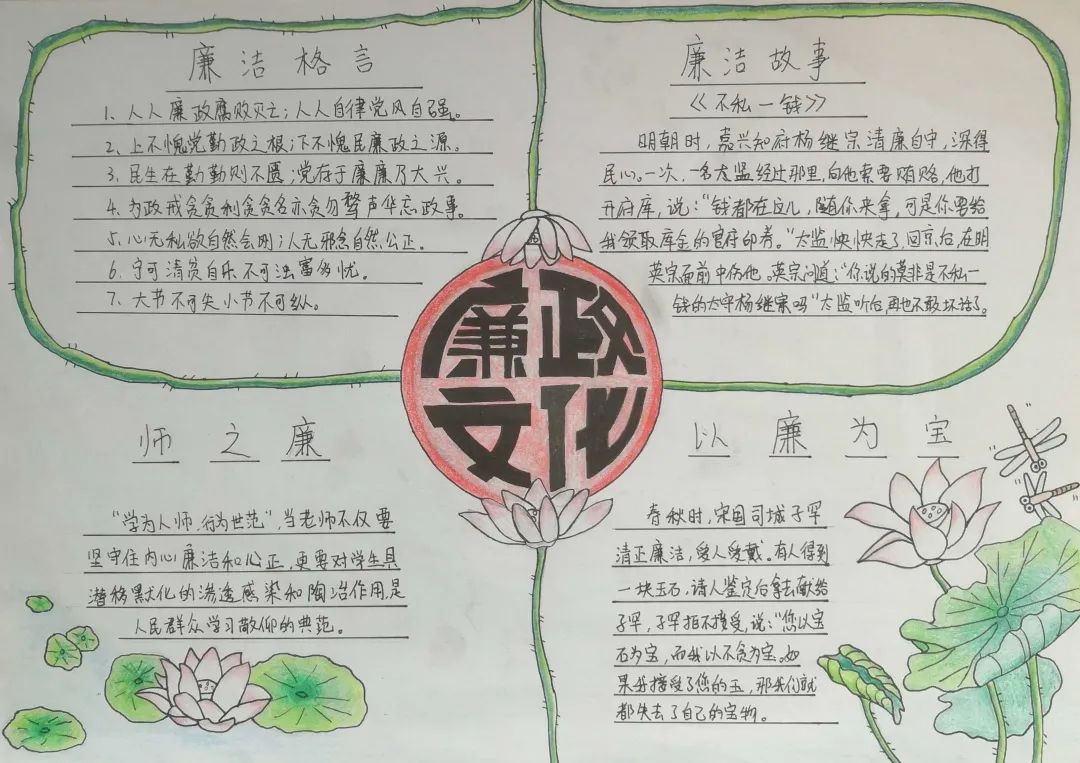 廉洁格言
1、人人廉政腐败灭亡;人人自律党风自强。
2、上不愧党勤政之根;下不愧民廉政之源。
3、民生在勤勤则不匮;党存于廉廉乃大兴。
4、为政戒贪贪利贪贪名亦贪勿骛声华忘政事。
5、心无私欲自然会刚;人无邪念自然公正。
6、宁可清贫自乐不可浊富多忧。
7、大节不可失小节不可纵。
廉洁故事
《不私一钱》
明朝时,嘉兴知府杨继宗清廉自守,深得
民心。一次,一名太监经过那里,向他索要贿赂,他打
开府库,说:“钱都在这儿,随你来拿,可是你要给
我领取库金的官府印券。”太监怏怏走了,回京后,在明
英宗面前中伤他。英宗问道:“你说的莫非是不私一
钱的太守杨继宗吗”太监听后,再也不敢坏话了。
廉政
文化
师之廉
“学为人师,行为世范”,当老师不仅要
坚守住内心廉洁和公正,更要对学生具
潜移默化的渗透感染和陶冶作用,是
人民群众学习敬仰的典范。
以廉为宝
春秋时,宋国司城子罕
清正廉洁,爱人爱戴。有人得到
一块玉石,请人鉴定后拿去献给
子罕,子罕拒不接受,说:“您以宝
石为宝,而我以不贪为宝。如
果我接受了您的玉,那我们就
都失去了自己的宝物。